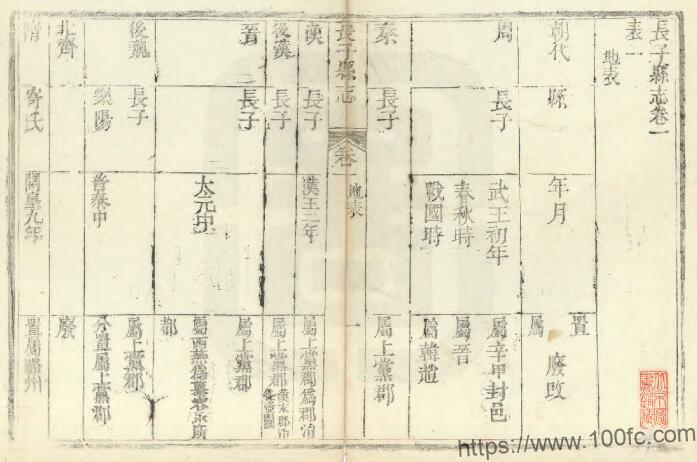 長子縣志卷一
表一
地表
朝代 縣 年月 置屬 廢改
周 長子 武王初年 屬辛甲封邑
春秋時 屬晉
戰國時 屬韓趙
秦 長子 屬上黨郡
長子縣志 卷一 地表 一
漢 長子 漢王二年 屬上黨郡爲郡治
後漢 長子 屬上黨郡漢末郡治
晉 長子 屬上黨郡
太元中 屬西燕爲慕容永所
都
後魏 長子 屬上黨郡
樂陽 普泰中 分置屬上黨郡
北齊 廢
隋 寄氏 開皇九年 置屬潞州
https://www.100fc.com